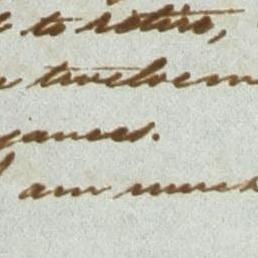 to retire,
twelvem
yances.
I am much